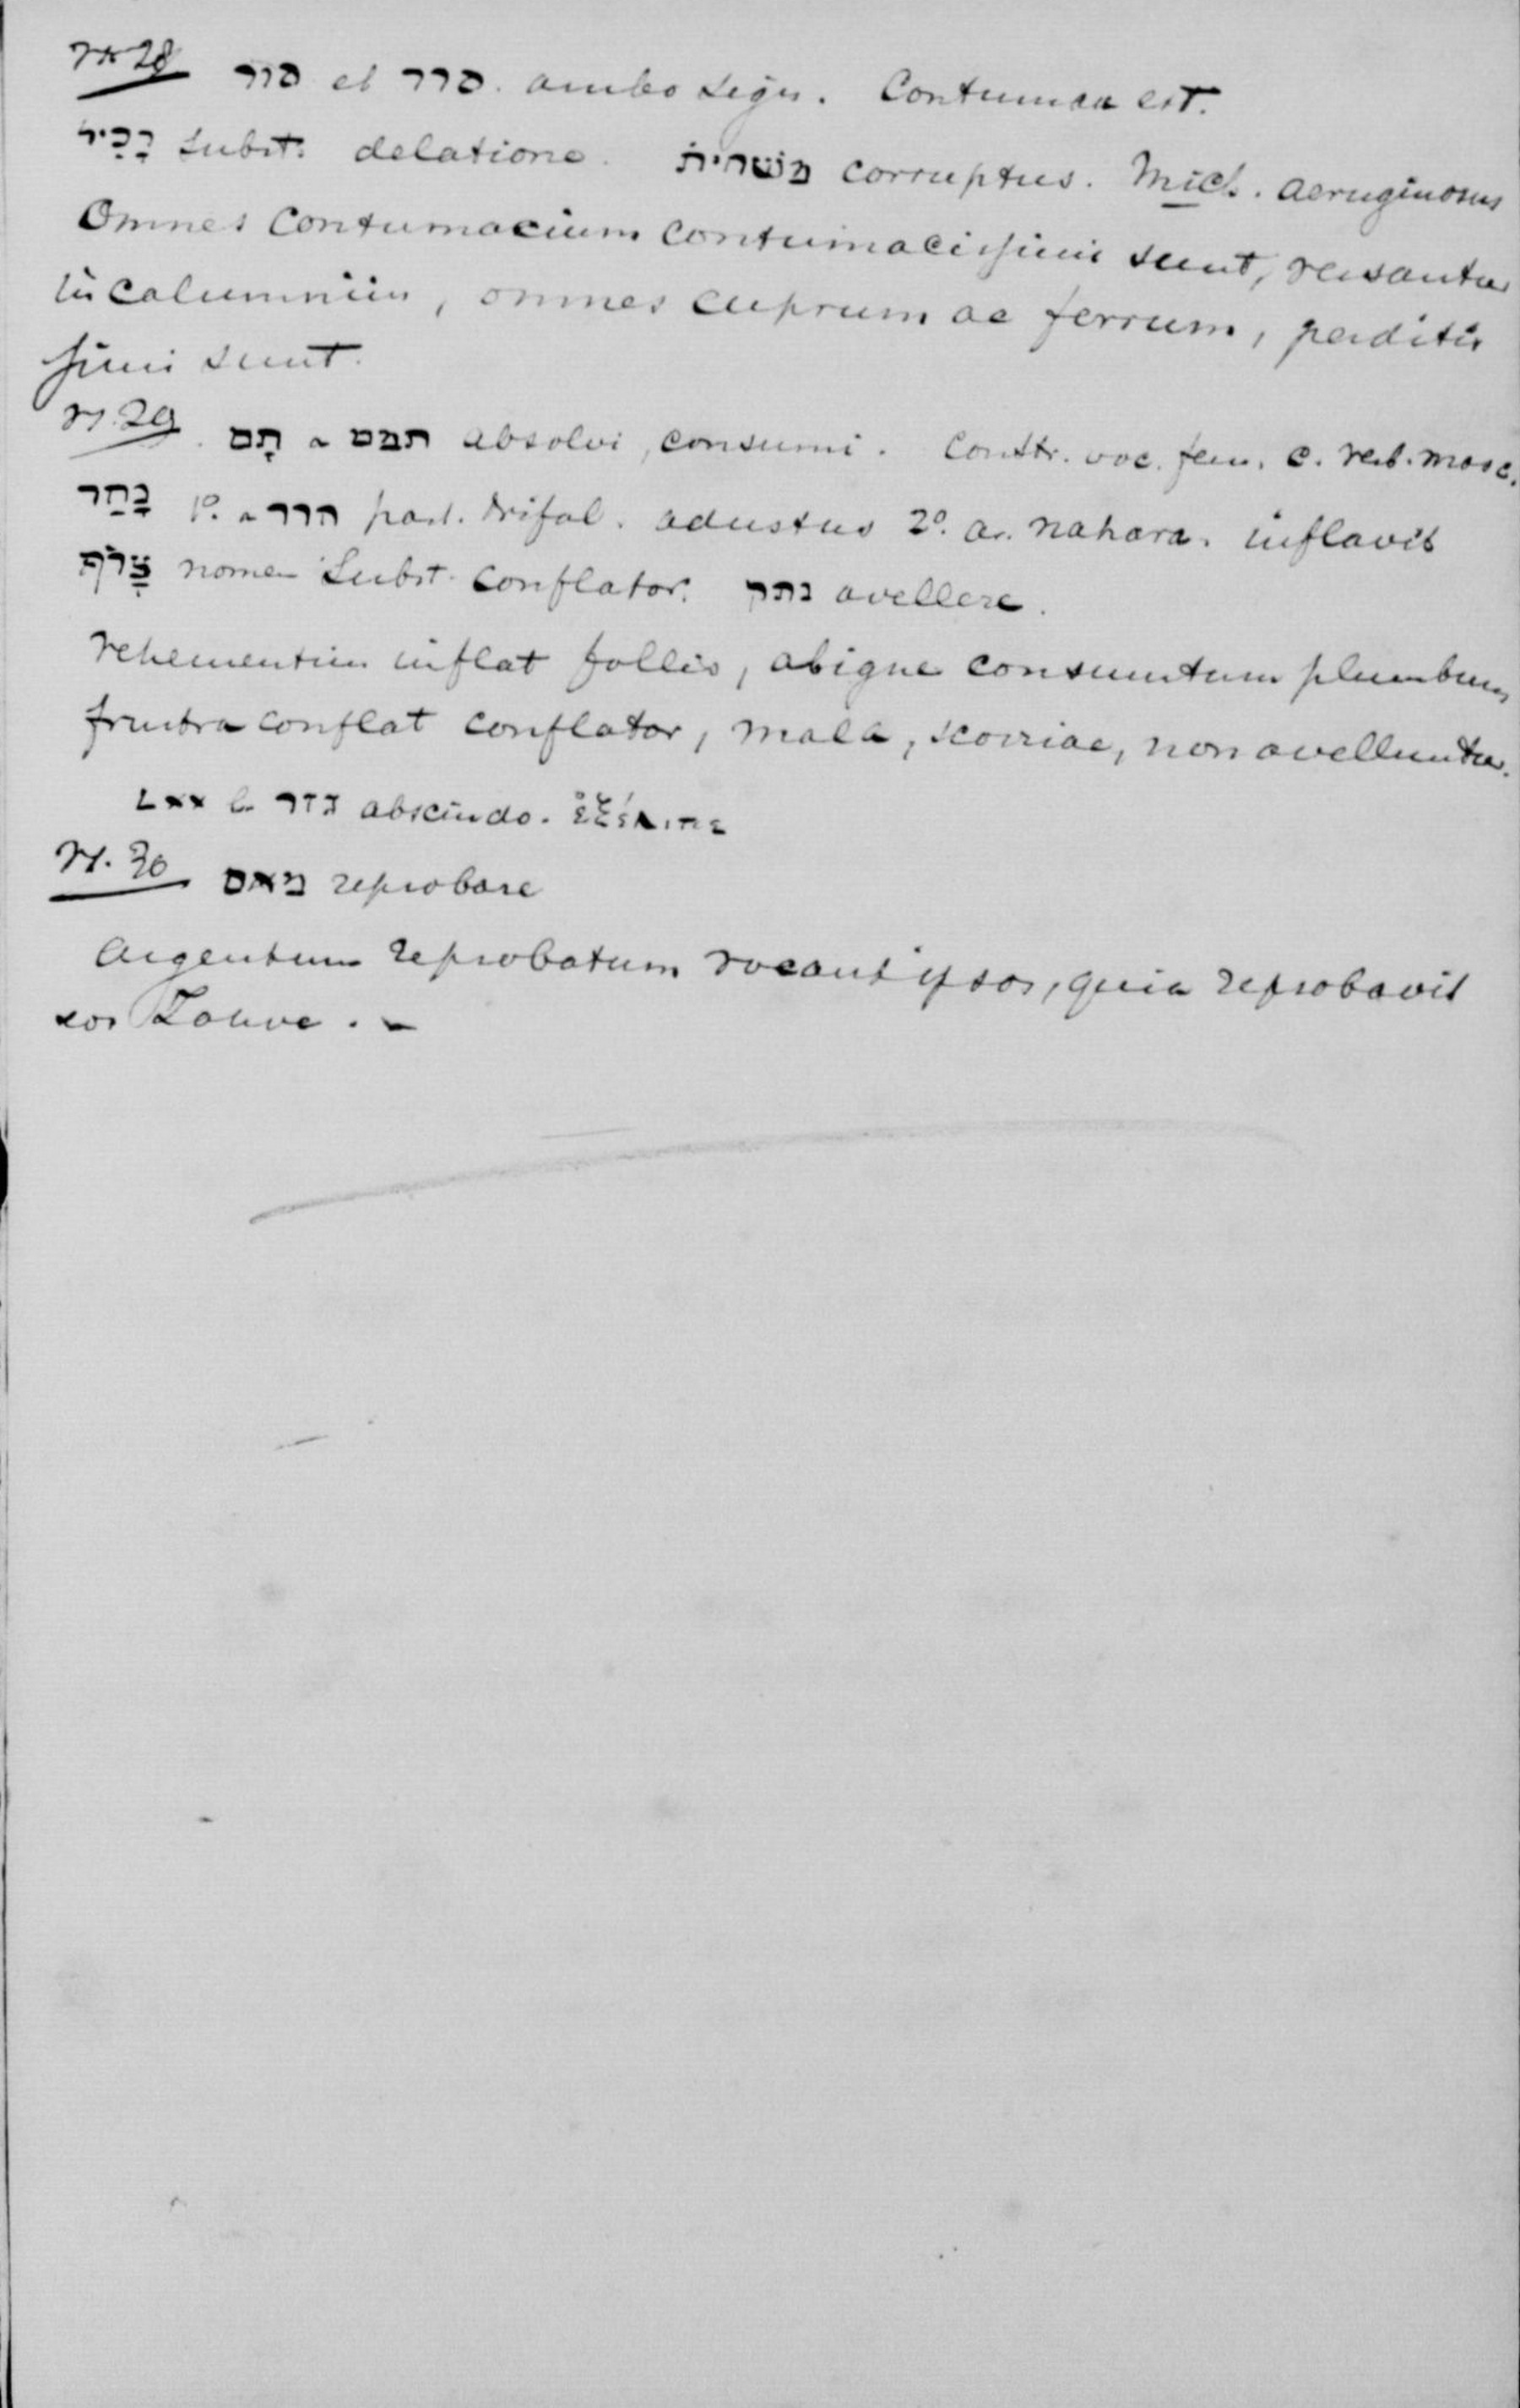 vs 28 סור et סרר. ambo legis. Contumax est.
רָכִיל subst. delatione. מַשְׁחִית corruptus. Mich. aeruginosus
Omnes contumacium contumacissimi sunt, versantur
in calumniis, omnes cuprum ac ferrum, perditis
simi sunt.
vs. 29. תָּם a תמם absolvi, consumi. Constr. voc. fem. c. verb. masc.
נָחַר 1º. a חרר part. Nifal. adustus 2º. ar. nahara. inflavit
צָרֹף nomen subst. conflator. נתק avellere.
vehementius inflat follis, ab igne consumtum plumbum
frustra conflat conflator, mala, scoriae, non avelluntur.
LXX גזר abscindo.
vs. 30 מאס reprobare
Argentum reprobatum vocant ipsos, quia reprobavit
eos Iahve. –